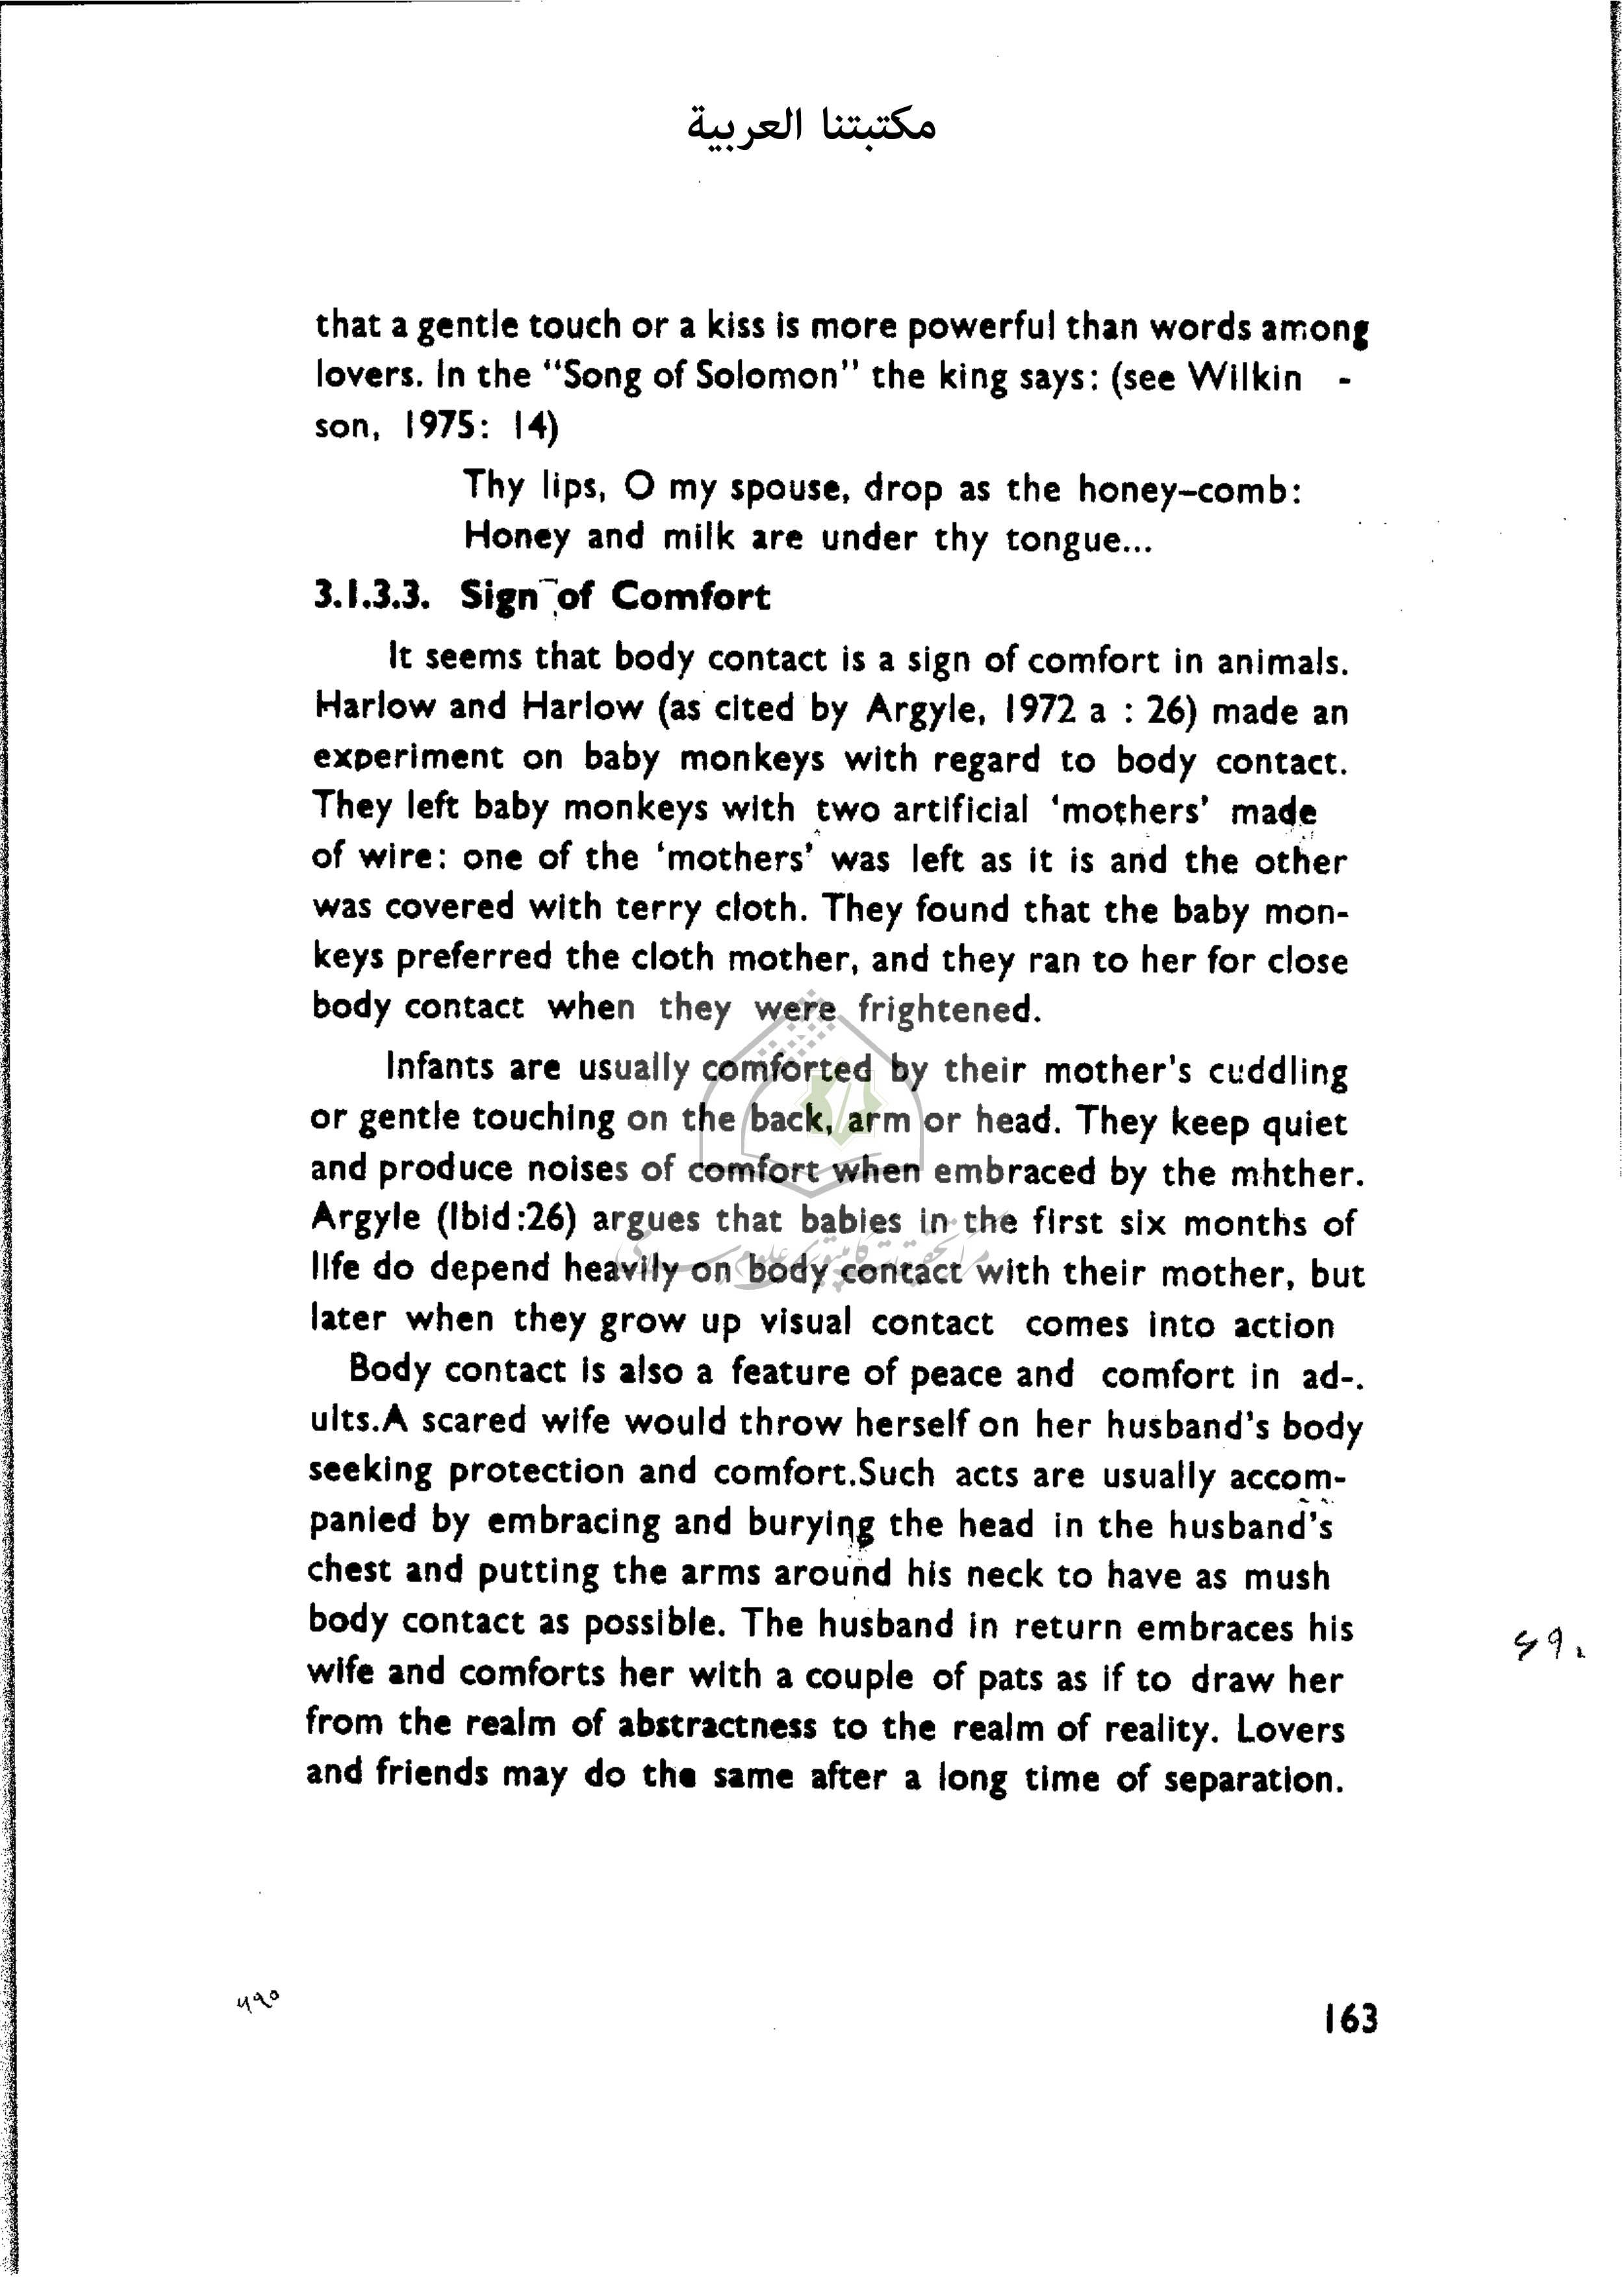 مكتبتنا العربية
that a gentle touch or a kiss is more powerful than words among
lovers. In the "Song of Solomon" the king says: (see Wilkin -
son, 1975: 14)
Thy lips, O my spouse, drop as the honey-comb:
Honey and milk are under thy tongue...
3.1.3.3. Sign of Comfort
It seems that body contact is a sign of comfort in animals.
Harlow and Harlow (as cited by Argyle, 1972 a : 26) made an
experiment on baby monkeys with regard to body contact.
They left baby monkeys with two artificial 'mothers' made
of wire: one of the 'mothers' was left as it is and the other
was covered with terry cloth. They found that the baby mon-
keys preferred the cloth mother, and they ran to her for close
body contact when they were frightened.
Infants are usually comforted by their mother's cuddling
or gentle touching on the back, arm or head. They keep quiet
and produce noises of comfort when embraced by the mhther.
Argyle (Ibid:26) argues that babies in the first six months of
life do depend heavily on body contact with their mother, but
later when they grow up visual contact comes into action
Body contact is also a feature of peace and comfort in ad-.
ults.A scared wife would throw herself on her husband's body
seeking protection and comfort.Such acts are usually accom-
panied by embracing and burying the head in the husband's
chest and putting the arms around his neck to have as mush
body contact as possible. The husband in return embraces his
wife and comforts her with a couple of pats as if to draw her
from the realm of abstractness to the realm of reality. Lovers
and friends may do the same after a long time of separation.
163